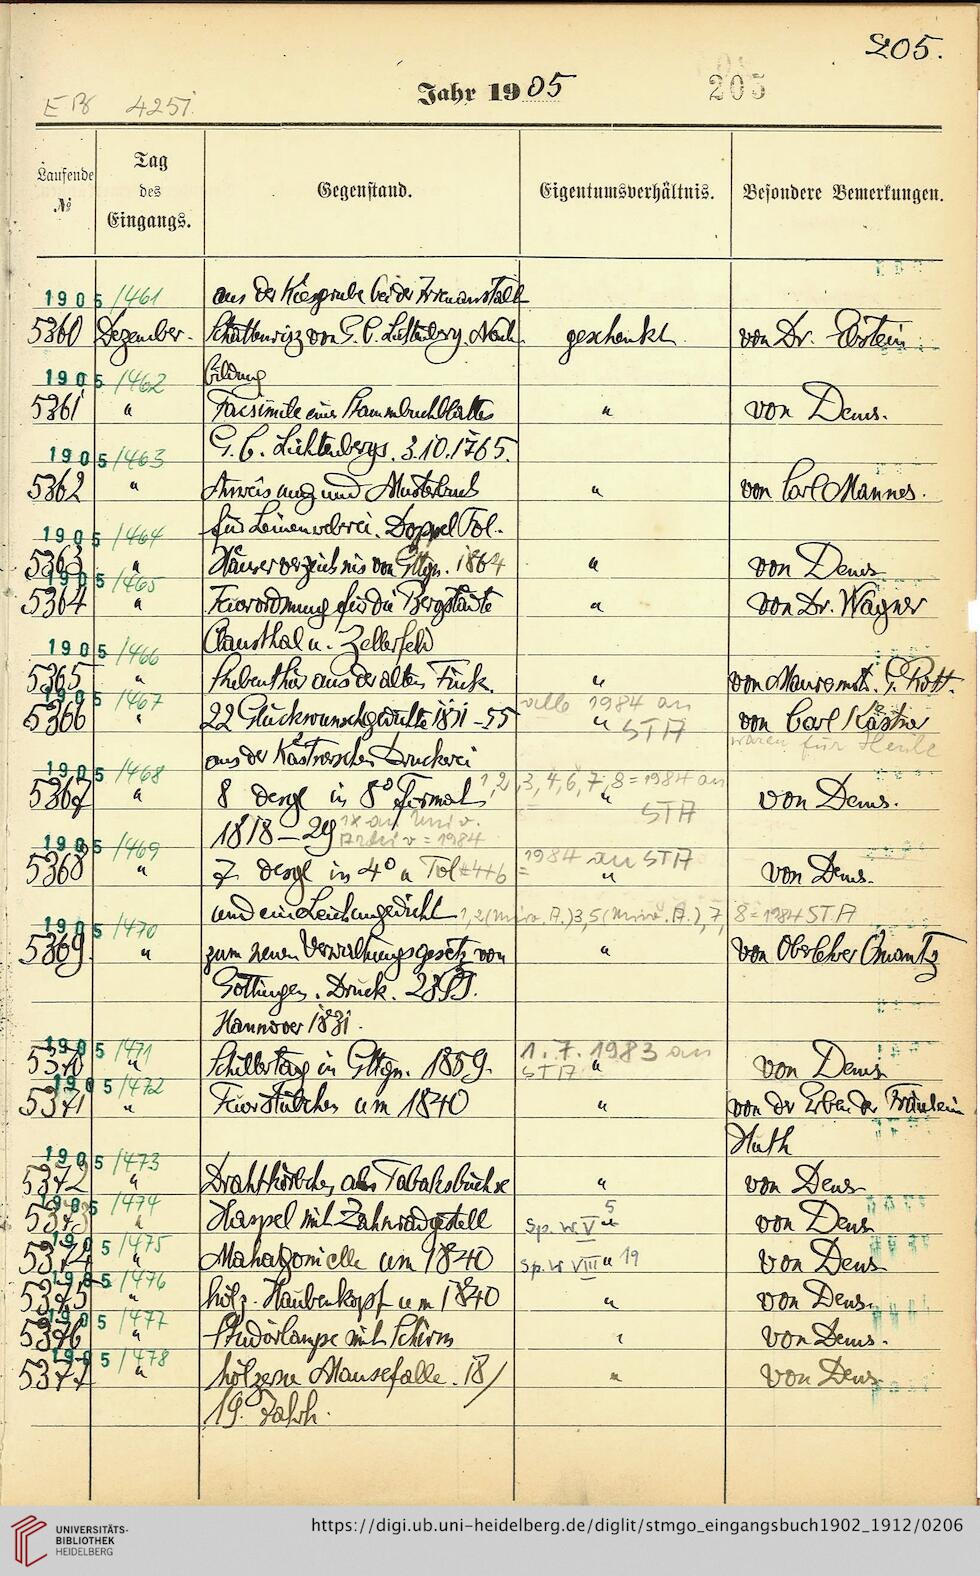 205.
Jahr 1905
205
EB 4251.
Laufende №
Tag des Eingangs.
Gegenstand.
Eigentumsverhältnis.
Besondere Bemerkungen.
1905 /461 aus der Kiesgrube bei der Irrenanstalt
5360 Dezember. Schattenriss von G. C. Lichtenberg. Nach- geschenkt von Dr. Ebstein
1905 /462 bildung
5361 " Facsimile eines Stammbuchblattes " von Dems.
1905 /463 G. C. Lichtenbergs. 3.10.1765.
5362 " Anweisung und Musterbuch " von Carl Mannes.
1905 /464 für Leinenweberei. Doppel Fol.
5363 " Häuserverzeichnis von Gttgn. 1864 " von Dems
1905 /465
5364 " Feuerordnung für die Bergstädte " von Dr. Wagner
1905 /466 Clausthal u. Zellerfeld
5365 " Stubenthür aus der alten Fink. " von Maurermstr. G. Rott.
1905 /467 alle 1984 an STA
5366 " 22 Glückwunschgedichte 1831-55 " von Carl Kästner
aus der Kästnerschen Druckerei
waren für Heute
1905 /468
5367 " 8 desgl in 8° Format 1,2,3,4,6,7,8=1984 an STA " von Dems.
1818-29 1x an Univ. Archiv = 1984
1905 /469
5368 " 7 desgl in 4° u Fol 1984 an STA " von Dems.
und ein Leichengedicht 1,2(Univ. A.)3,5(Univ. A.),7,8=1984 STA
1905 /470
5369. " zum neuen Verwaltungsgesetz von " von Oberlehrer Quantz
Göttingen. Druck.
Hannover 1831.
1905 /471
5370 " Schillertag in Gttgn. 1859. 1.7.1983 an STA " von Dems
1905 /472
5371 " Feuerstübchen um 1840 " von der Erben der Fräulein
Huth
1905 /473
5372 " Drahtkörbchen als Tabaksbüchse " von Dems
1905 /474
5373 " Haspel mit Zahnradgestell Sp. W V 5 " von Dems
1905 /475
5374 " Mahagonielle um 1840 Sp. W VIII 19 " von Dems
1905 /476
5375 " hölz. Haubenkopf um 1840 " von Dems.
1905 /477
5376 " Studirlampe mit Schirm " von Dems.
1905 /478
5377 " hölzerne Mausefalle. 18/ " von Dems
19. Jahrh.
UNIVERSITÄTS-
BIBLIOTHEK
HEIDELBERG
https://digi.ub.uni-heidelberg.de/diglit/stmgo_eingangsbuch1902_1912/0206